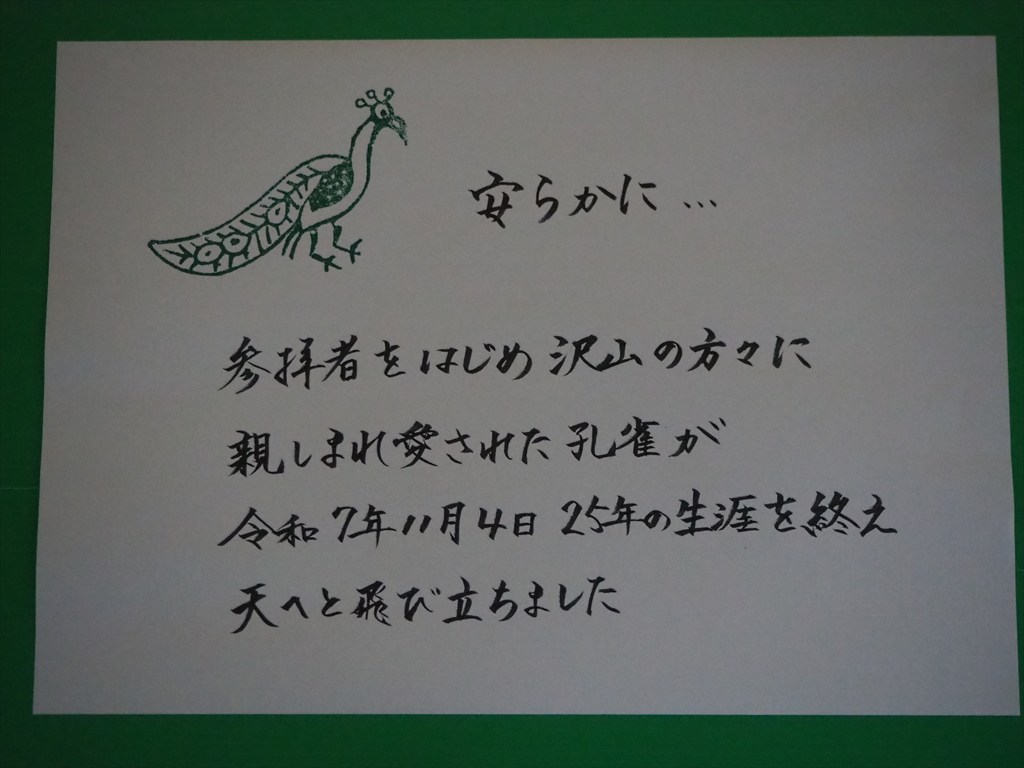 安らかに…
参拝者をはじめ沢山の方々に
親しまれ愛された孔雀が
令和7年11月4日 25年の生涯を終え
天へと飛び立ちました